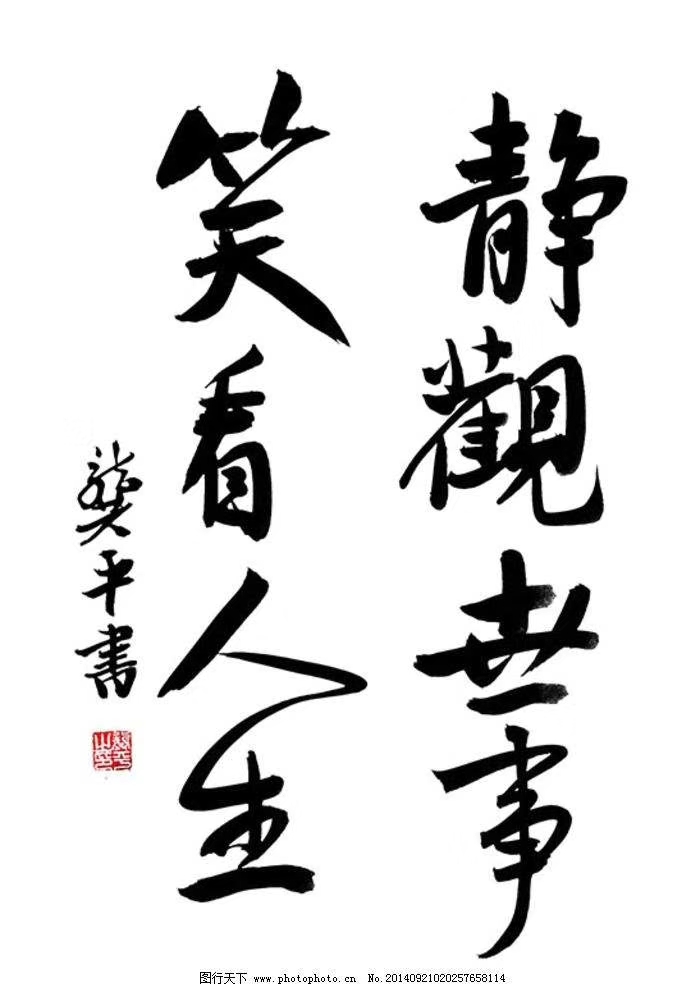 静觀世事
笑看人生
龚平書
图行天下 www.photophoto.cn No.20140921020257658114